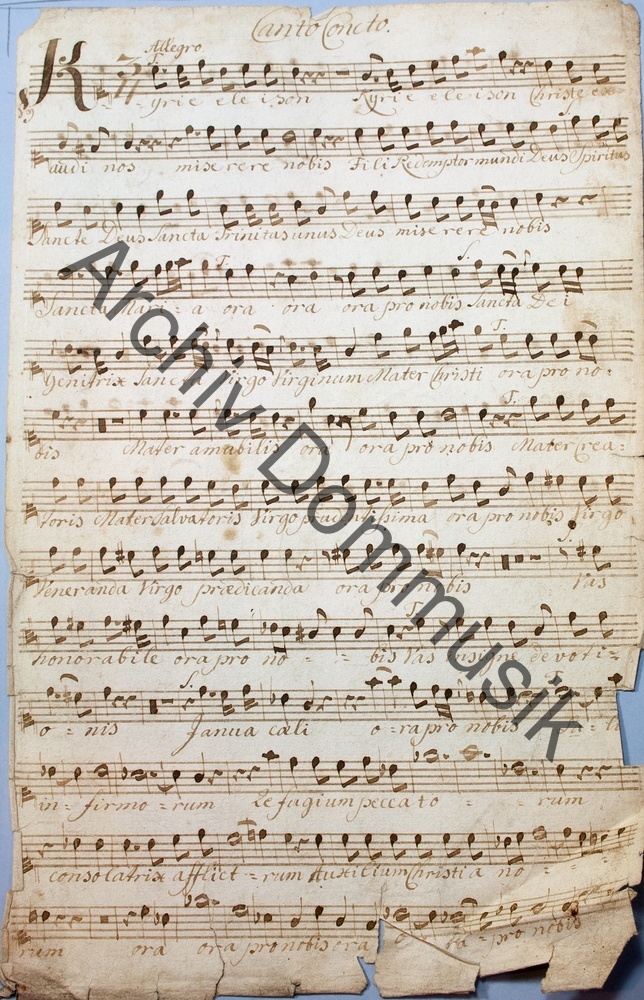 Canto Conc:to.
Allegro
T.
Kyrie eleison Kyrie eleison Christe ex=
S.
audi nos miserere nobis Fili Redemptor mundi Deus Spiritus
Sancte Deus Sancta Trinitas unus Deus miserere nobis
T. S.
Sancta Mari = a ora ora ora pro nobis Sancta De i
T.
Genitrix Sancta Virgo Virginum Mater Christi ora pro no=
T.
bis Mater amabilis ora ora pro nobis Mater Crea=
toris Mater Salvatoris Virgo prudentissima ora pro nobis Virgo
S.
Veneranda Virgo prædicanda ora pro nobis Vas
T.
honorabile ora pro no = = bis Vas insigne devoti=
S.
o = nis Janua cæli o = ra pro nobis
in = firmo = rum Refugium peccato = = rum
consolatrix afflict = rum Auxilium Christia no =
rum ora ora pro nobis ora = ra = pro nobis
Archiv Dommusik